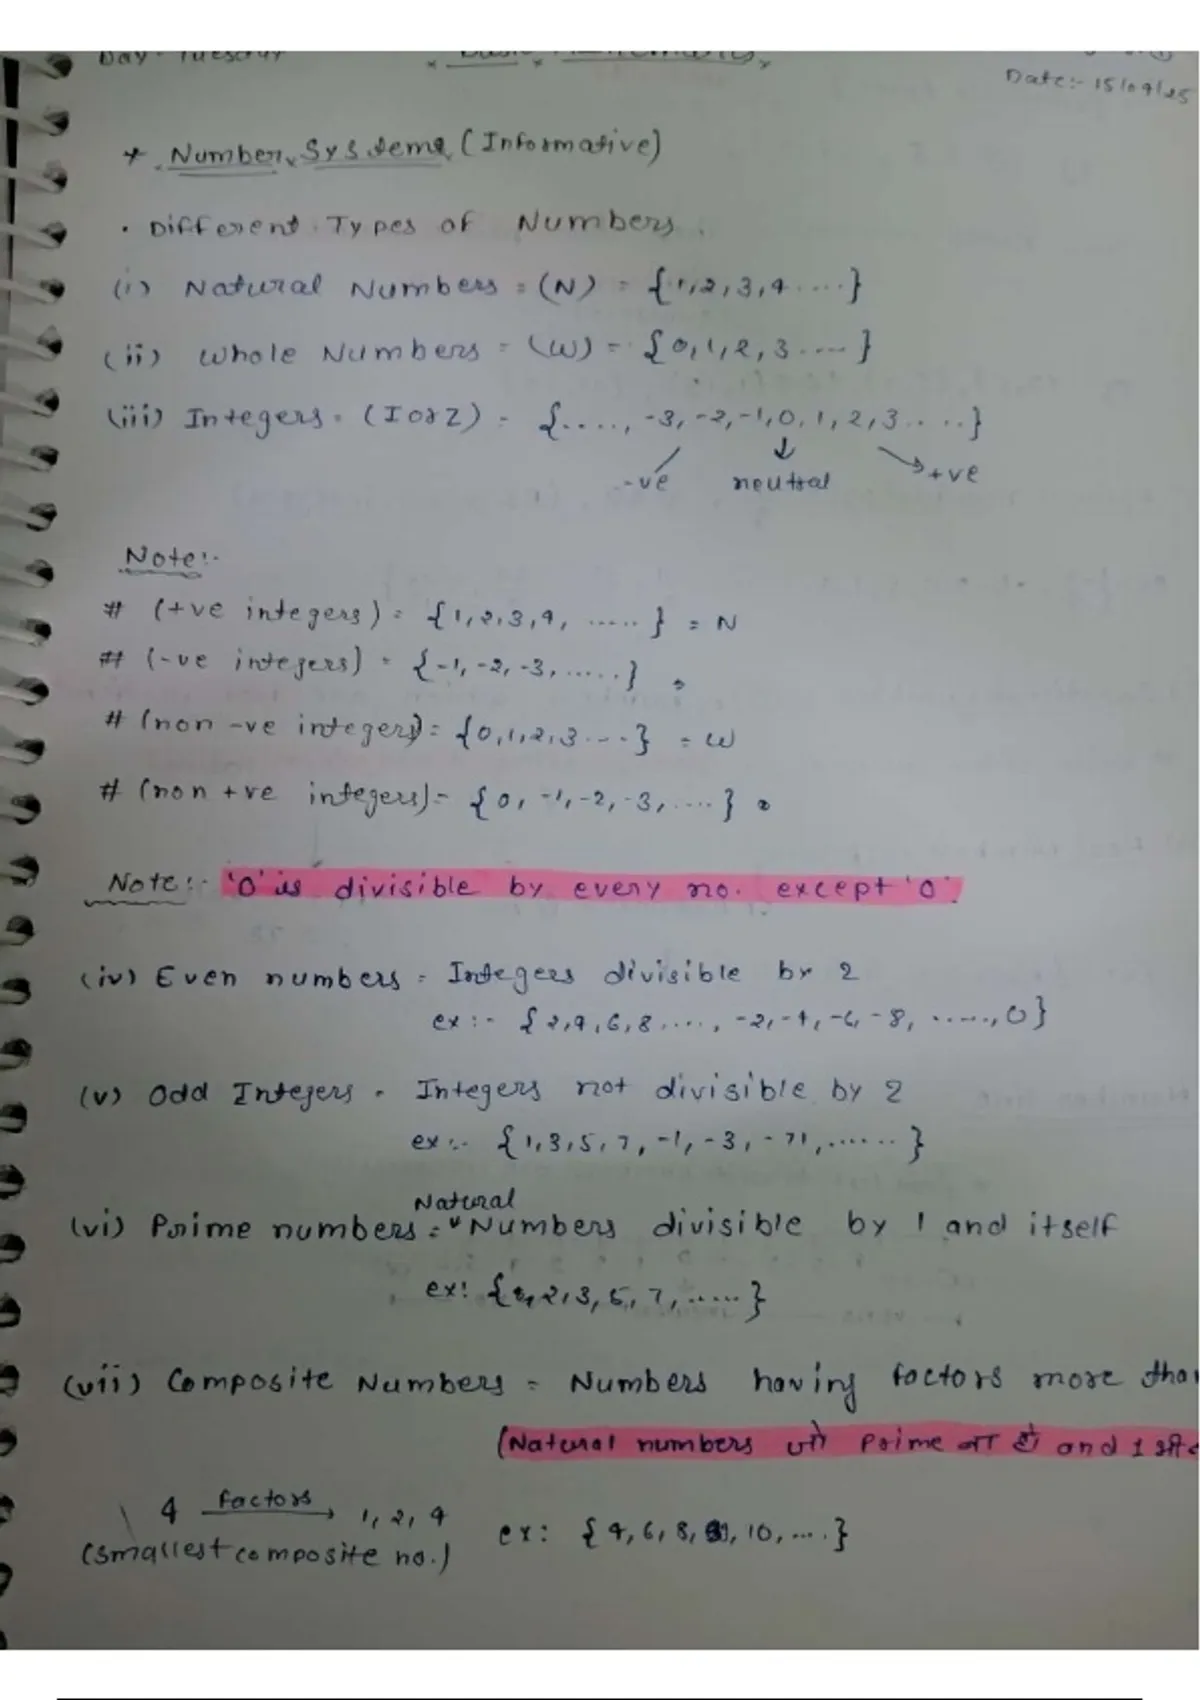 Day - Tuesday
Basic Mathematics
Date:- 15/09/25
* Number Systems (Informative)
• Different Types of Numbers
(i) Natural Numbers = (N) = {1,2,3,4.....}
(ii) Whole Numbers = (W) = {0,1,2,3....}
(iii) Integers = (I or Z) = {...., -3,-2,-1,0,1,2,3.....}
-ve neutral +ve
Note:-
# (+ve integers) = {1,2,3,4, .....} = N
# (-ve integers) = {-1,-2,-3,.....}
# (non -ve integers) = {0,1,2,3....} = W
# (non +ve integers) = {0,-1,-2,-3,....}
Note:- '0' is divisible by every no. except '0'.
(iv) Even numbers = Integers divisible by 2
ex:- {2,4,6,8....., -2,-4,-6,-8, ....., 0}
(v) Odd Integers = Integers not divisible by 2
ex:- {1,3,5,7,-1,-3,-71,......}
Natural
(vi) Prime numbers = Numbers divisible by 1 and itself
ex: {2,3,5,7,.....}
(vii) Composite Numbers = Numbers having factors more
(Natural numbers जो Prime ना हो and 1 भी
4 factors → 1,2,4
ex: {4,6,8,9,10,....}
(smallest composite no.)